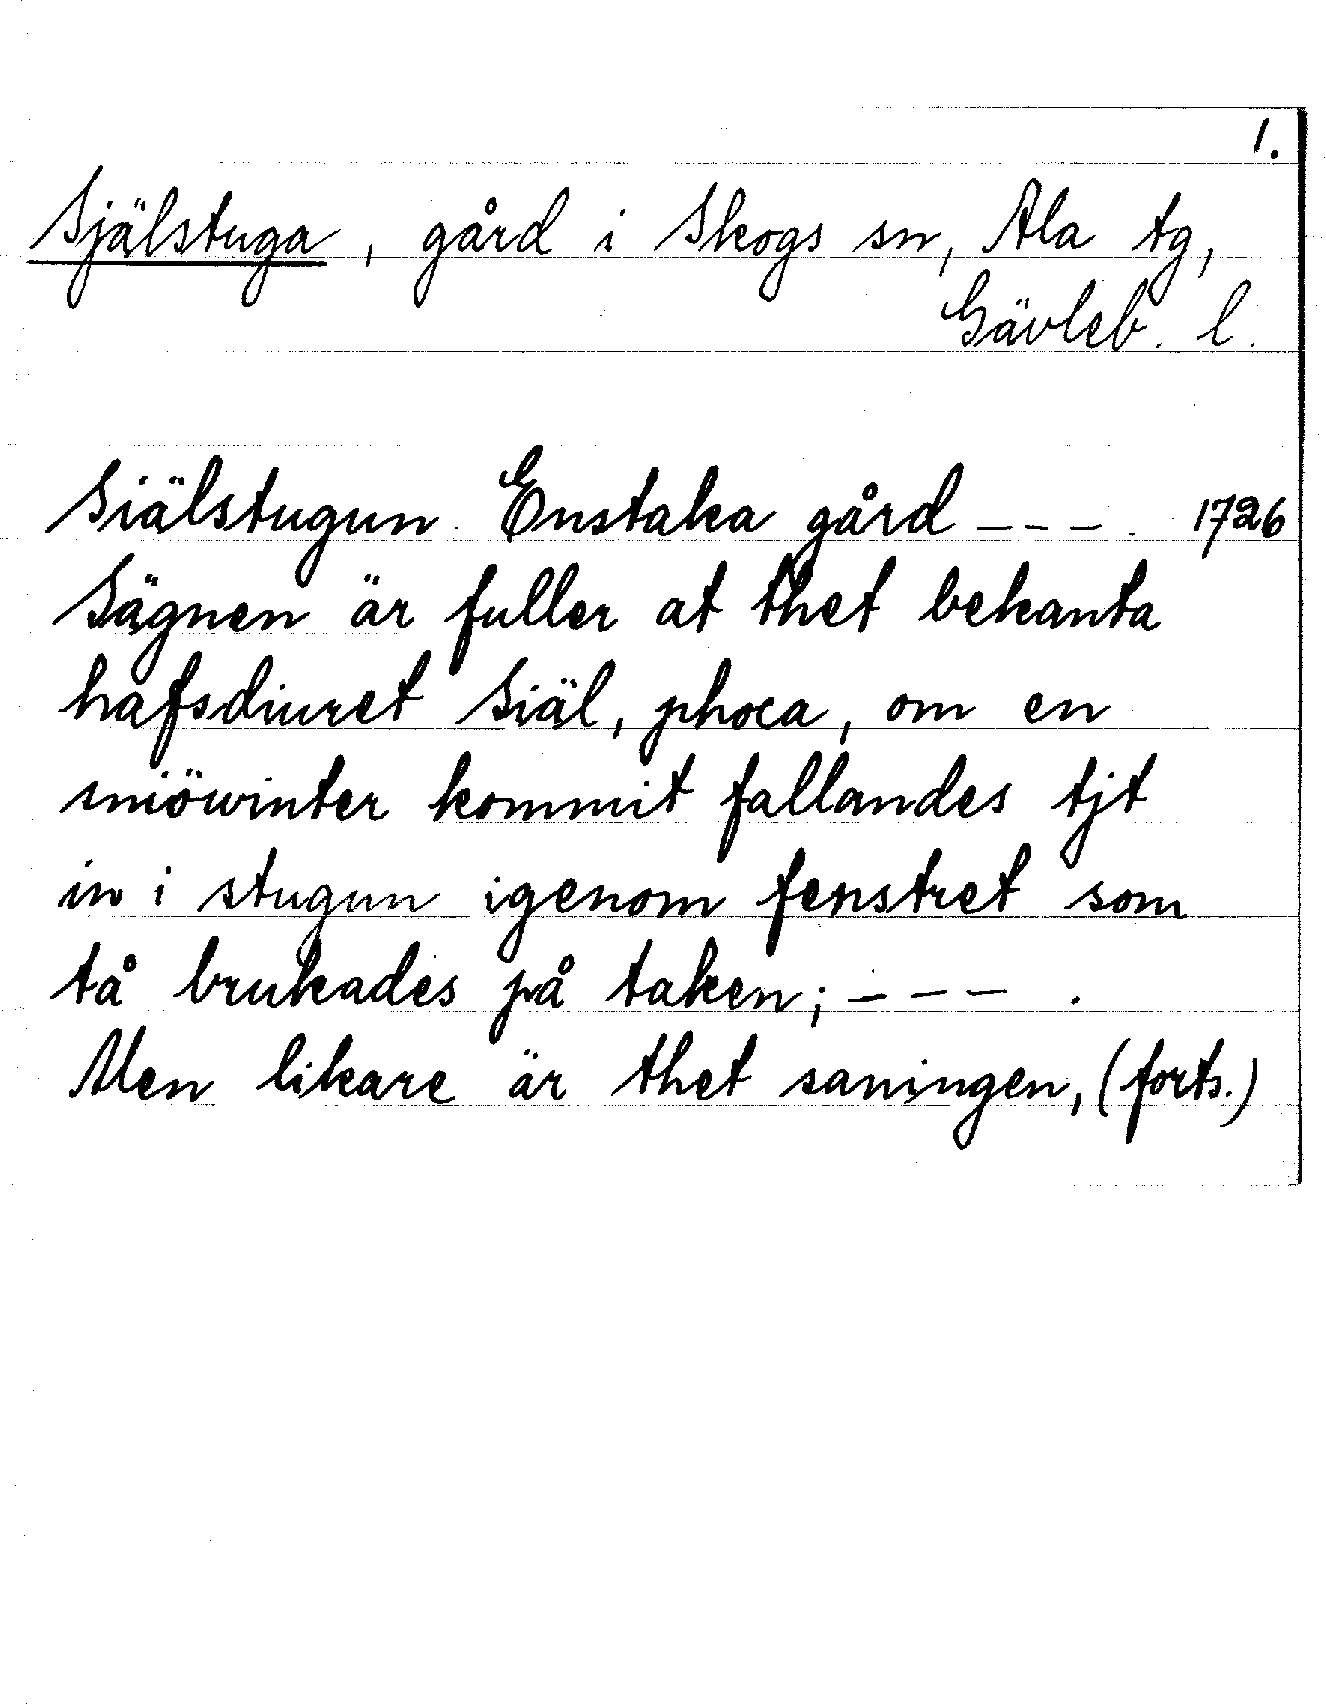 1.
Själstuga, gård i Skogs sn, Ala tg,
Gävleb. l.
Siälstugun. Enstaka gård - - - . 1726
Sägnen är fuller at thet bekanta
hafsdiuret Siäl, phoca, om en
sniöwinter kommit fallandes tjt
in i stugun igenom fenstret som
tå brukades på taken; - - - .
Men likare är thet saningen, (forts.)